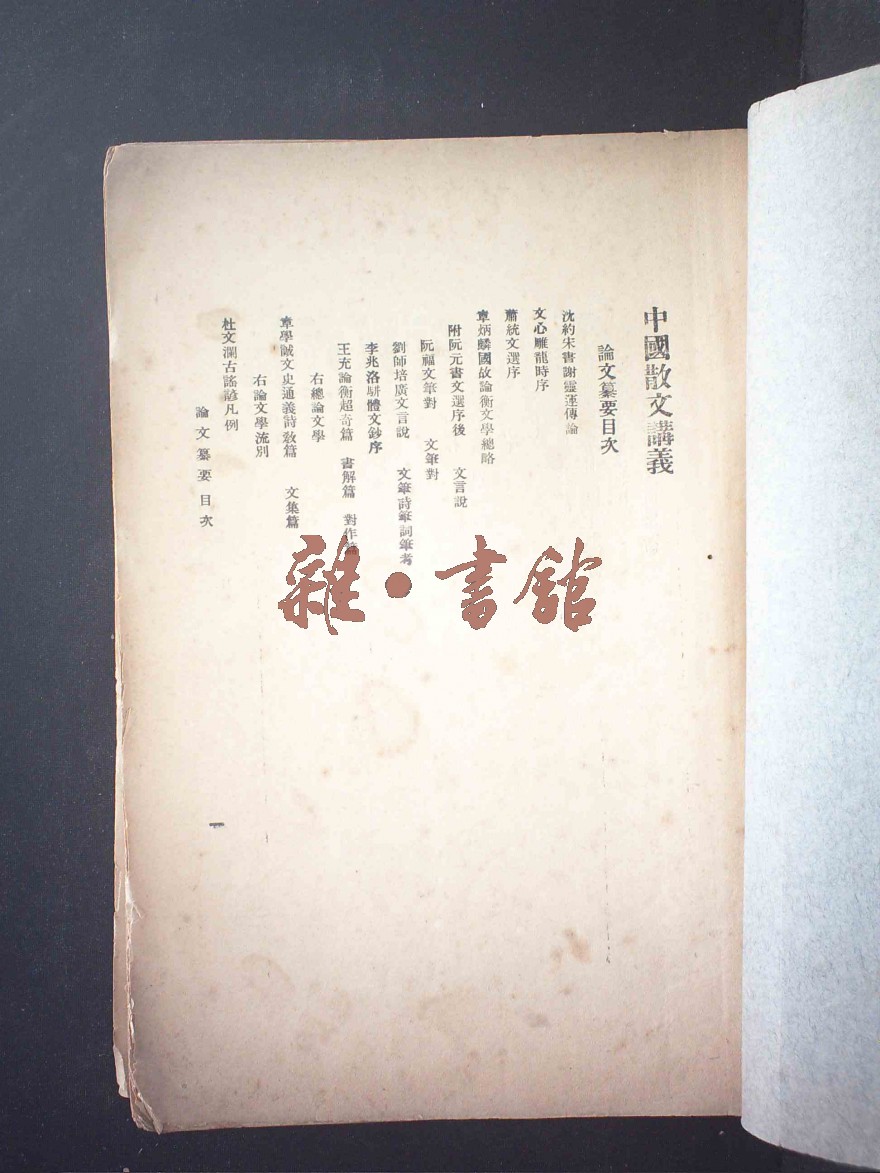 中國散文講義
論文纂要目次
沈約宋書謝靈運傳論
文心雕龍時序
蕭統文選序
章炳麟國故論衡文學總略
附阮元書文選序後 文言說
阮福文筆對 文筆對
劉師培廣文言說 文筆詩筆詞筆考
李兆洛駢體文鈔序
王充論衡超奇篇 書解篇 對作篇
右總論文學
章學誠文史通義詩敎篇 文集篇
右論文學流別
杜文瀾古謠諺凡例
論文纂要目次
一
雜·書館